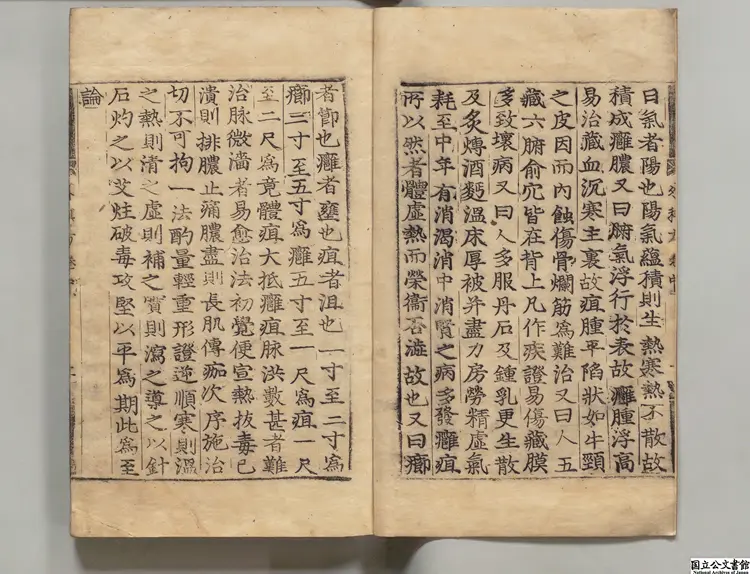 曰氣者陽也陽氣蘊積則生熱寒熱不散故
積成癰膿又曰腑氣浮行於表故癰腫浮高
易治藏血沉寒主裏故疽腫平陷狀如牛頸
之皮因而內蝕傷骨爛筋爲難治又曰人五
藏六腑俞穴皆在背上凡作疾證易傷藏膜
多致壞病又曰人多服丹石及鍾乳更生散
及炙煿酒麪溫床厚被并盡力房勞精虛氣
耗至中年有消渴消中消腎之病多發癰疽
所以然者體虛熱而榮衞否澁故也又曰癤
者節也癰者壅也疽者沮也一寸至二寸爲
癤三寸至五寸爲癰五寸至一尺爲疽一尺
至二尺爲竟體疽大抵癰疽脉洪數甚者難
治脉微濇者易愈治法初覺便宣熱拔毒已
潰則排膿止痛膿盡則長肌傅痂次序施治
切不可拘一法酌量輕重形證逆順寒則溫
之熱則清之虛則補之實則瀉之導之以針
石灼之以艾炷破毒攻堅以平爲期此爲至
論
国立公文書館
National Archives of Japan